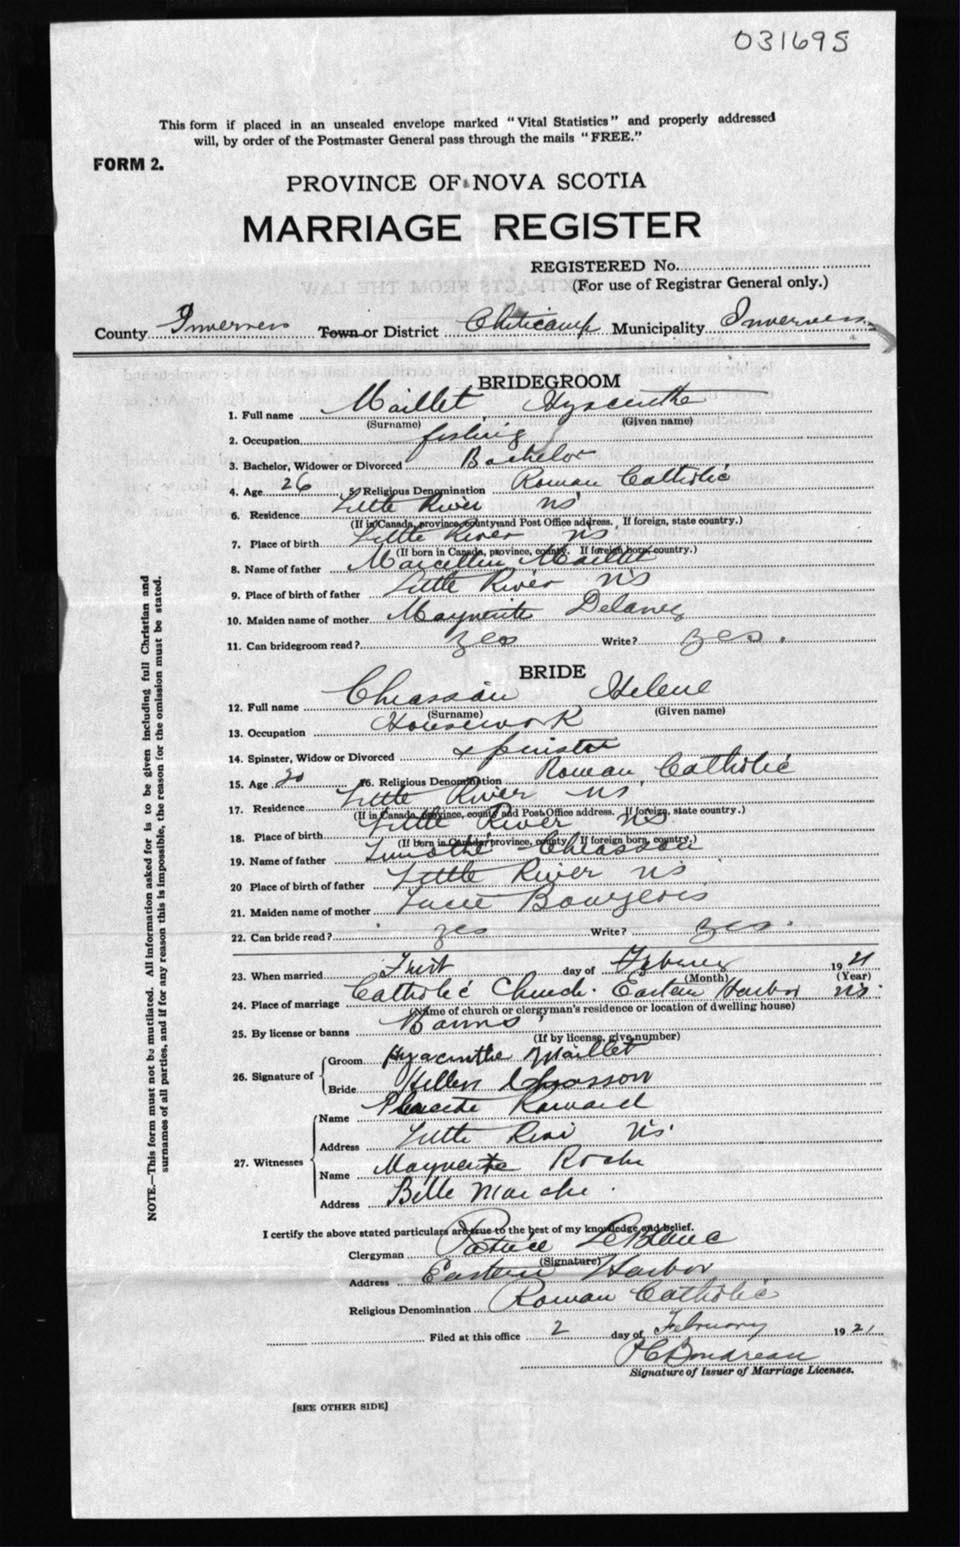 031695
This form if placed in an unsealed envelope marked "Vital Statistics" and properly addressed
will, by order of the Postmaster General pass through the mails "FREE."
FORM 2.
PROVINCE OF NOVA SCOTIA
MARRIAGE REGISTER
REGISTERED No.
(For use of Registrar General only.)
County Inverness Town or District Cheticamp Municipality Inverness
BRIDEGROOM
1. Full name Maillet, Hyacinthe
(Surname) (Given name)
2. Occupation fishing
3. Bachelor, Widower or Divorced Bachelor
4. Age 26 5. Religious Denomination Roman Catholic
6. Residence Little River NS
(If in Canada, province, county and Post Office address. If foreign, state country.)
7. Place of birth Little River NS
(If born in Canada, province, county. If foreign born, country.)
8. Name of father Marcellin Maillet
9. Place of birth of father Little River NS
10. Maiden name of mother Marguerite Delaney
11. Can bridegroom read? yes Write? yes.
BRIDE
12. Full name Chiasson Helene
(Surname) (Given name)
13. Occupation Housework
14. Spinster, Widow or Divorced Spinster
15. Age 20 16. Religious Denomination Roman Catholic
17. Residence Little River NS
(If in Canada, province, county and Post Office address. If foreign, state country.)
18. Place of birth Little River NS
(If born in Canada, province, county. If foreign born, country.)
19. Name of father Timothé Chiasson
20 Place of birth of father Little River NS
21. Maiden name of mother Lucie Bourgeois
22. Can bride read? yes Write? yes.
23. When married First day of February 1921
(Month) (Year)
24. Place of marriage Catholic Church. Eastern Harbor NS.
(Name of church or clergyman's residence or location of dwelling house)
25. By license or banns Banns
(If by license, give number)
26. Signature of Groom Hyacinthe Maillet
Bride Hellen Chiasson
27. Witnesses Name Placide
Address Little River NS.
Name Marguerite Roche
Address Belle Marche.
I certify the above stated particulars are true to the best of my knowledge and belief.
Clergyman Patrice LeBlanc
(Signature)
Address Eastern Harbor
Religious Denomination Roman Catholic
Filed at this office 2 day of February 1921
Boudreau
Signature of Issuer of Marriage Licenses.
[SEE OTHER SIDE]
NOTE.—This form must not be mutilated. All information asked for is to be given including full Christian and
surnames of all parties, and if for any reason this is impossible, the reason for the omission must be stated.